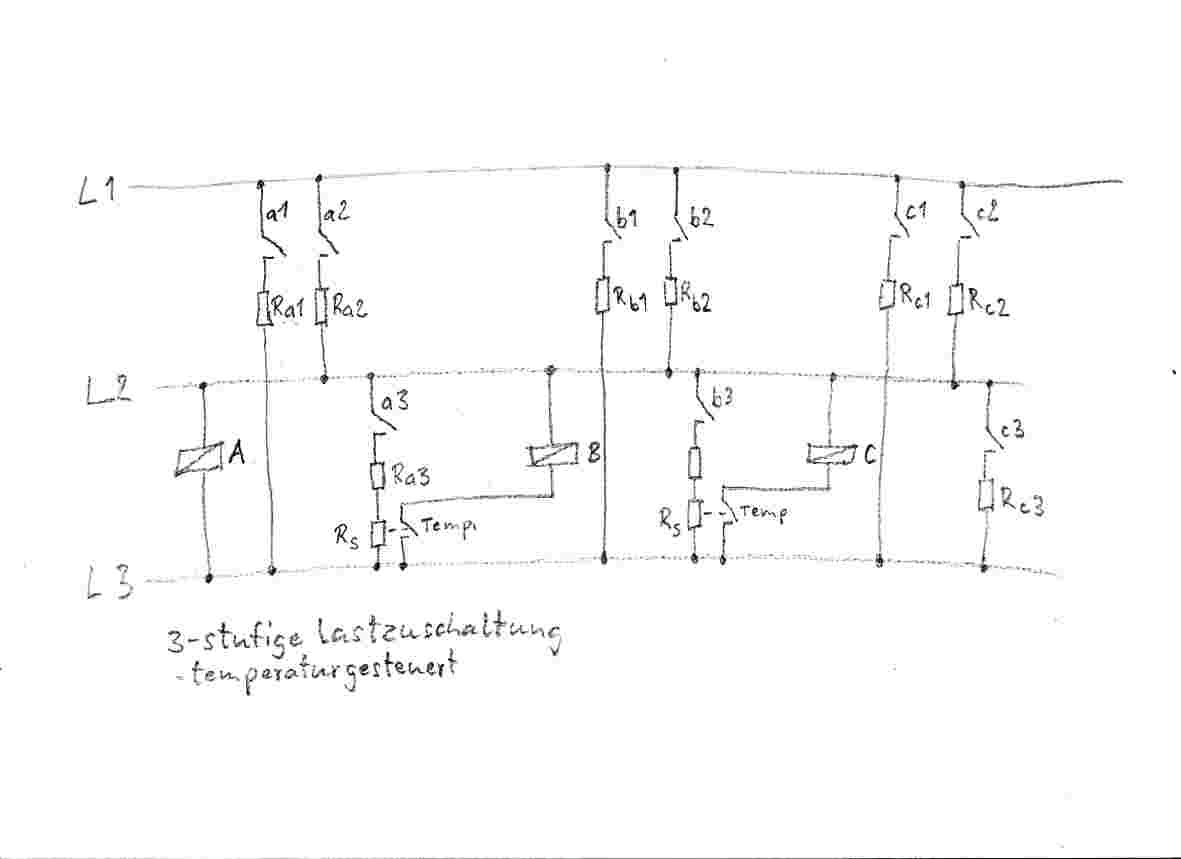 L1
a1
a2
b1
b2
c1
c2
Ra1
Ra2
Rb1
Rb2
Rc1
Rc2
L2
a3
b3
c3
A
B
C
Ra3
Rc3
Rs
Temp.
Rs
Temp
L3
3-stufige Lastzuschaltung
- temperaturgesteuert